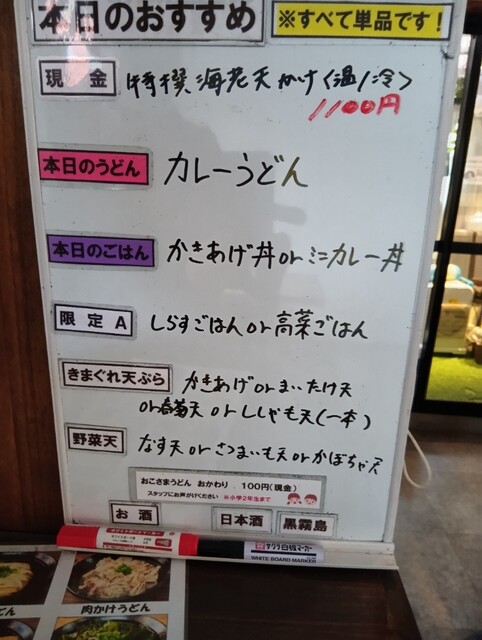 本日のおすすめ
※すべて単品です!
現金 特撰海老天かけ〈温/冷〉
1100円
本日のうどん カレーうどん
本日のごはん かきあげ丼orミニカレー丼
限定A しらすごはんor高菜ごはん
きまぐれ天ぷら かきあげorまいたけ天
or春菊天orししゃも天(一本)
野菜天 なす天orさつまいも天orかぼちゃ天
おこさまうどん おかわり 100円(現金)
スタッフにお声がけください ※小学2年生まで
お酒 日本酒 黒霧島
サクラ白板マーカー
WHITE BOARD MARKER
どん
肉かけうどん